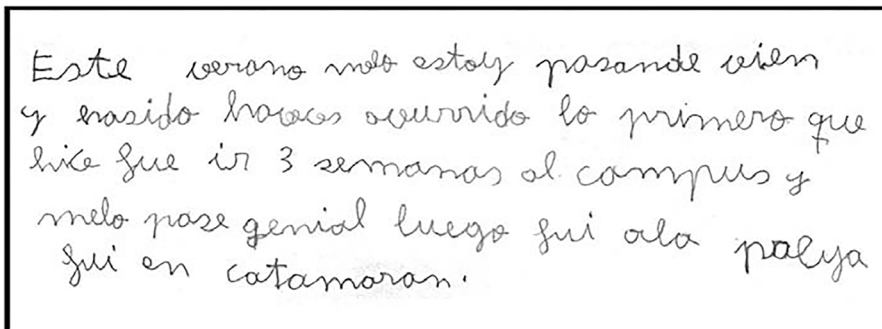 Este verano melo estoy pasande vien
y hasido haveces ocurrido lo primero que
hice fue ir 3 semanas al campus y
melo pase genial luego fui ala palya
fui en catamaran.